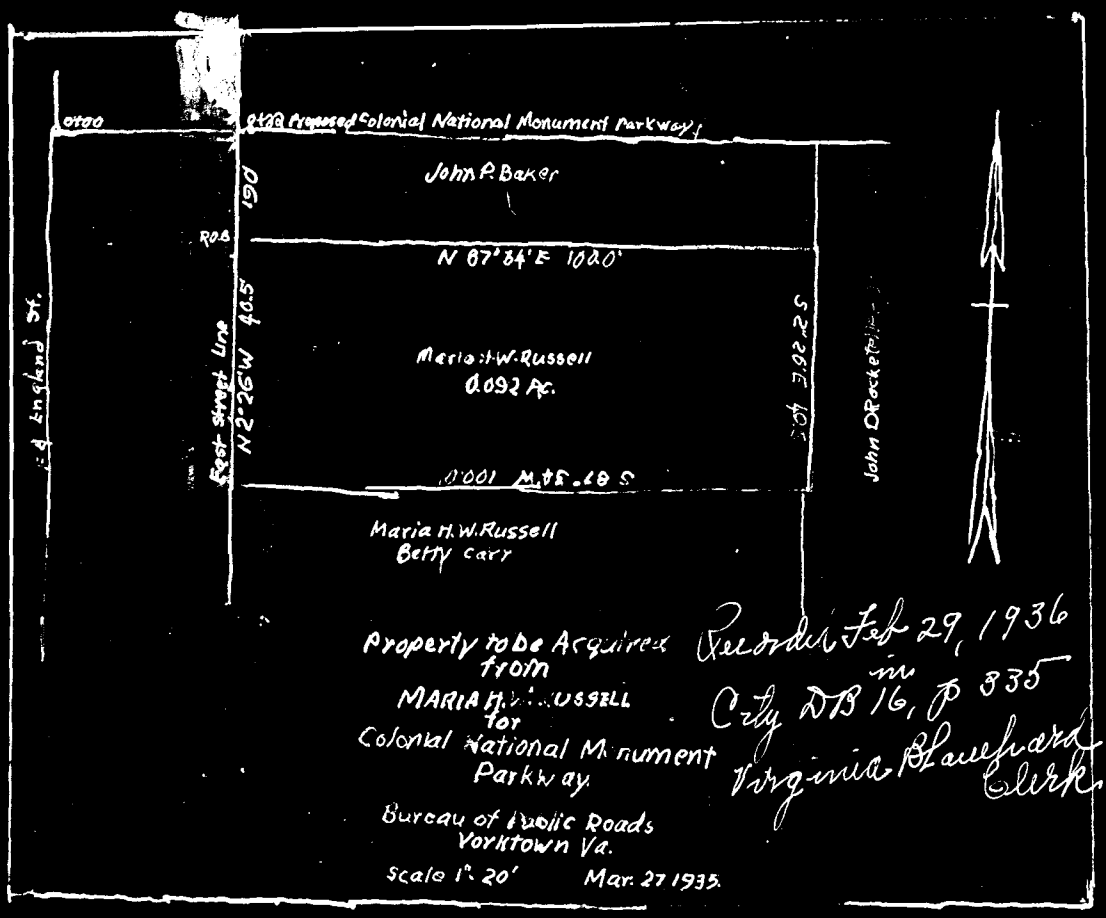 0+00
Proposed Colonial National Monument Parkway
John P. Baker
190
N 87°34'E 100.0'
N. England St.
East Street Line
N 2°26'W 40.5'
Maria H.W. Russell
0.092 Ac.
S 2°26'E 40.5
John D Rockefeller
S 87°34'W 100.0
Maria H.W. Russell
Betty Carr
Property to be Acquired
from
MARIA H. W. RUSSELL
for
Colonial National Monument
Parkway.
Bureau of Public Roads
Yorktown Va.
Scale 1"=20' Mar. 27 1935.
Recorded Feb 29, 1936
in
City DB 16, p 335
Virginia Blanchard
Clerk